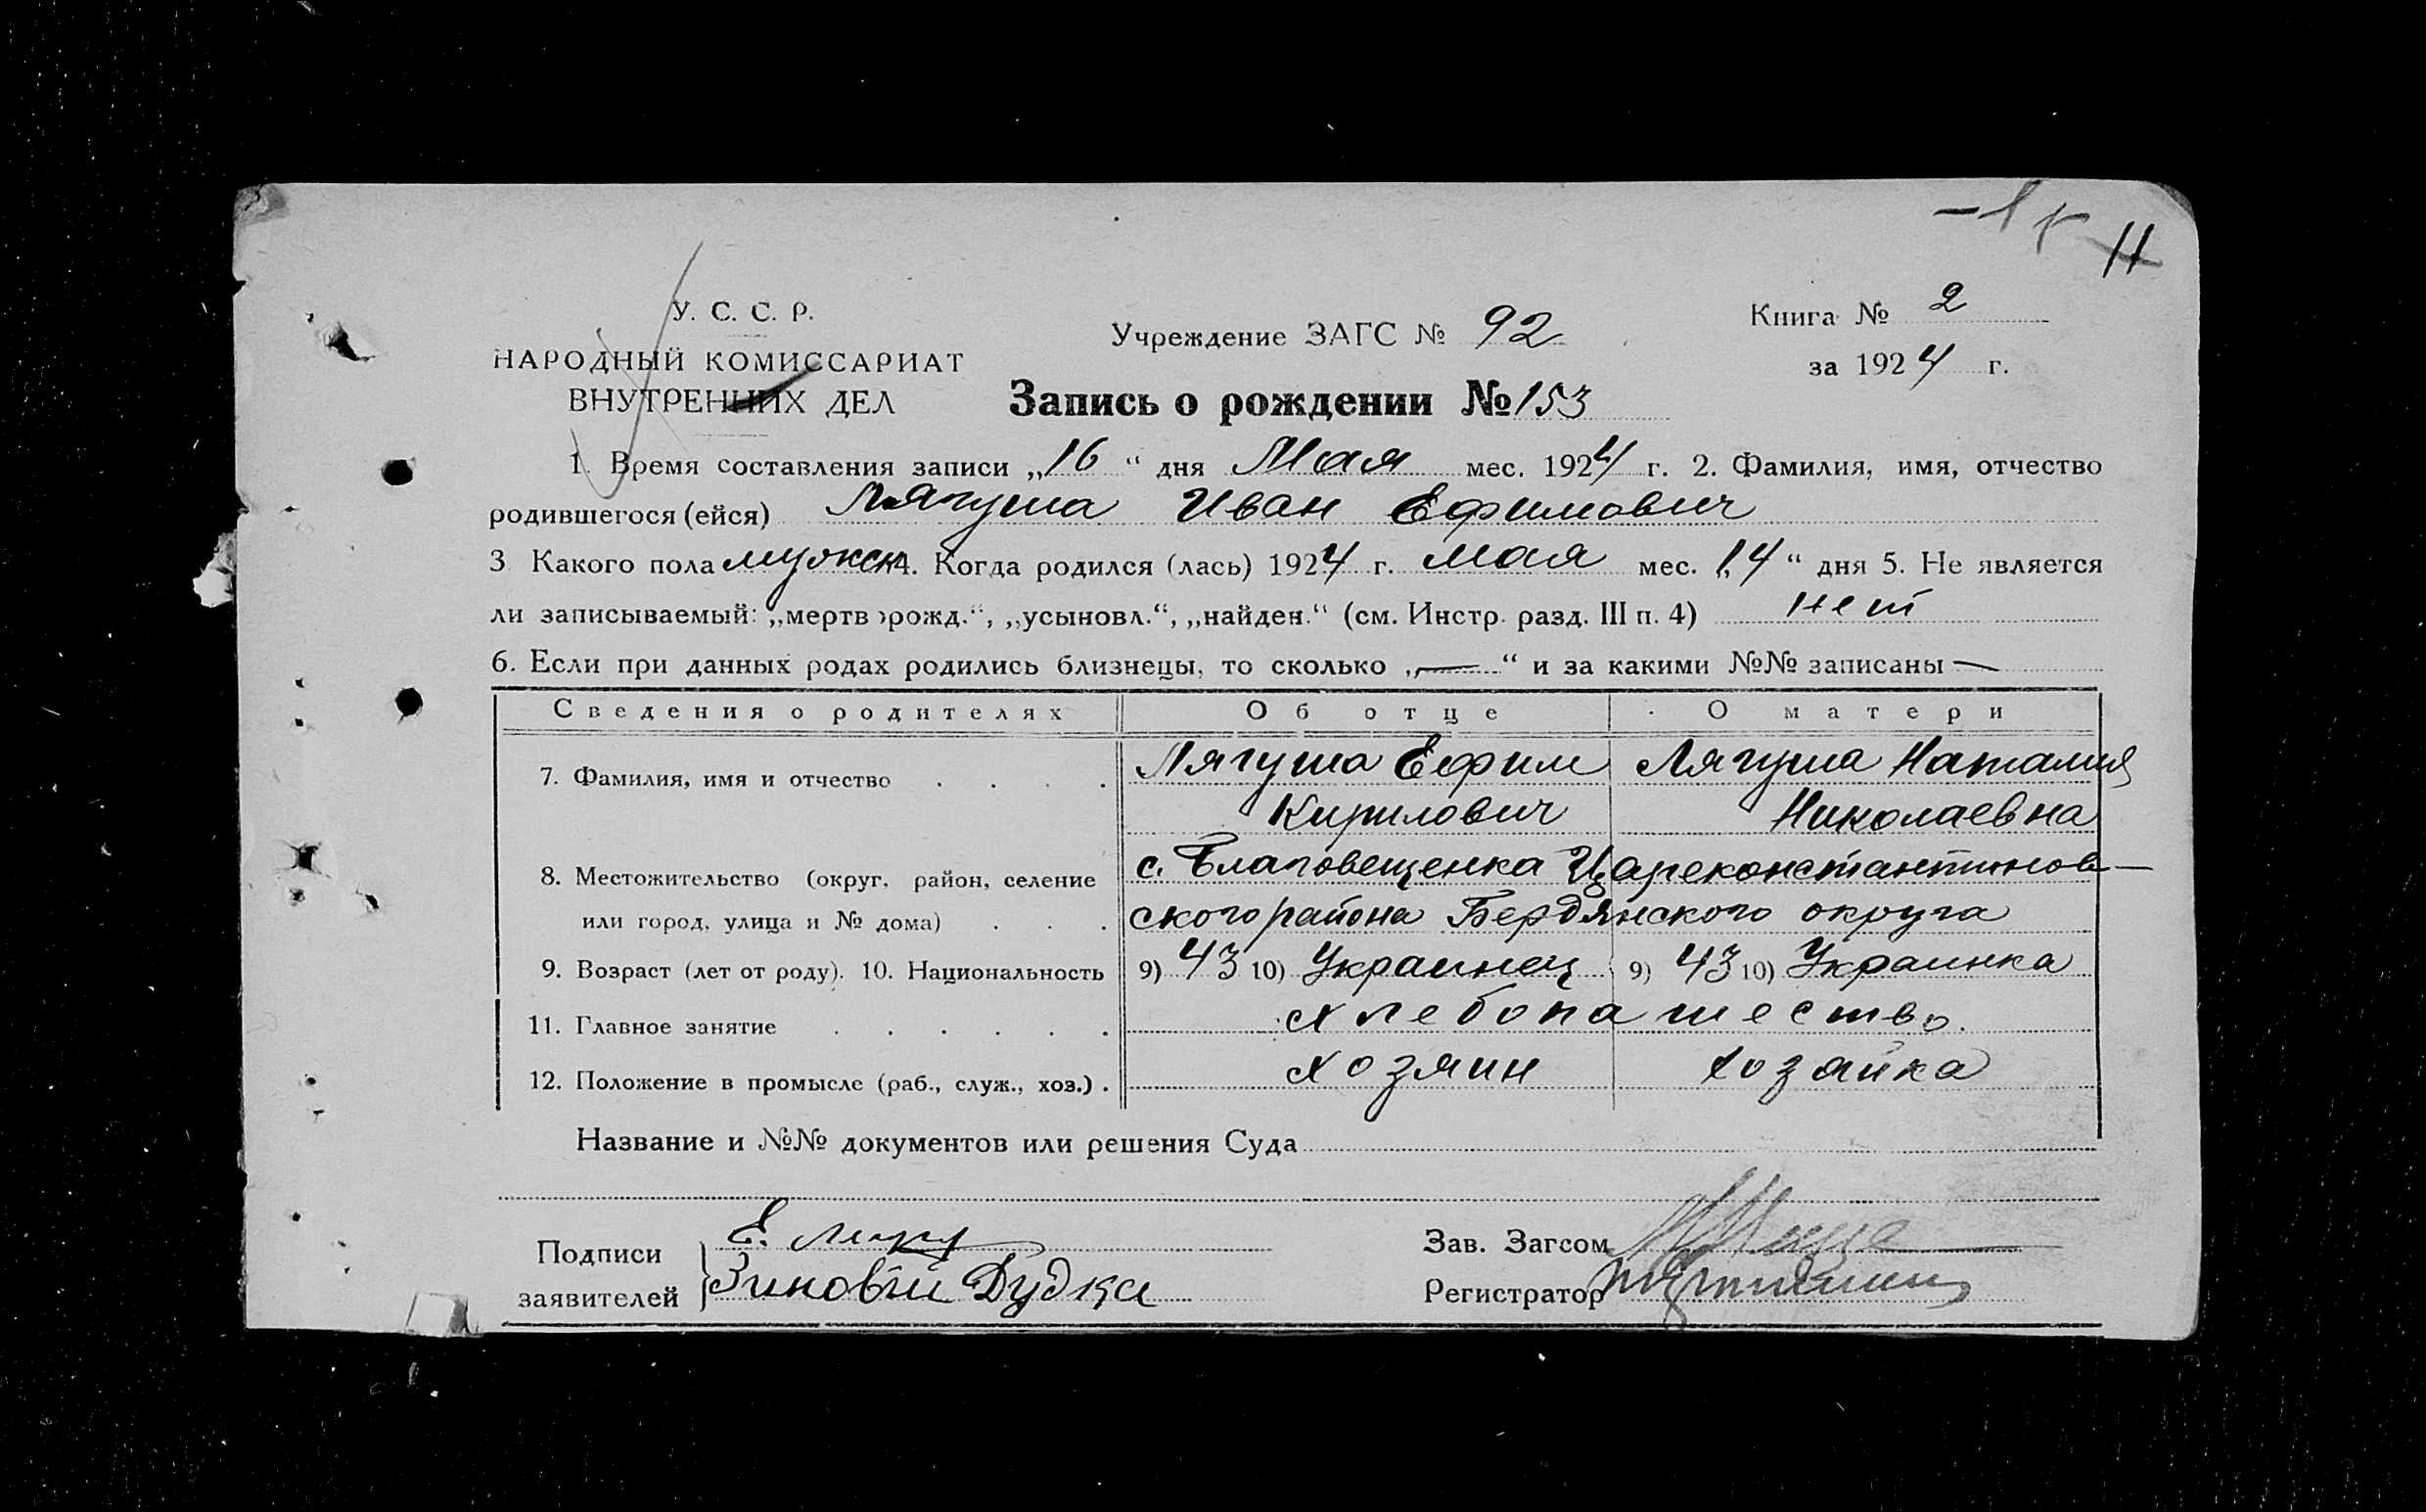 11
У. С. С. Р.
НАРОДНЫЙ КОМИССАРИАТ
ВНУТРЕННИХ ДЕЛ
Учреждение ЗАГС № 92
Книга № 2
за 1924 г.
Запись о рождении № 153
1. Время составления записи „16“ дня Мая мес. 1924 г. 2. Фамилия, имя, отчество
родившегося (ейся) Лягуша Иван Ефимович
3 Какого пола мужск 4. Когда родился (лась) 1924 г. мая мес. „14“ дня 5. Не является
ли записываемый: „мертворожд.“, „усыновл.“, „найден.“ (см. Инстр. разд. III п. 4) нет
6. Если при данных родах родились близнецы, то сколько „—“ и за какими №№ записаны —
Сведения о родителях Об отце О матери
7. Фамилия, имя и отчество . . . . Лягуша Ефим Лягуша Наталия
Кирилович Николаевна
8. Местожительство (округ, район, селение с. Благовещенка Цареконстантинов—
или город, улица и № дома) . . . ского района Бердянского округа
9. Возраст (лет от роду). 10. Национальность 9) 43 10) Украинец 9) 43 10) Украинка
11. Главное занятие . . . . . . хлебопашество.
12. Положение в промысле (раб., служ., хоз.) . хозяин хозяйка
Название и №№ документов или решения Суда
Подписи
заявителей
Е.
Зиновий Дудка
Зав. Загсом
Регистратор